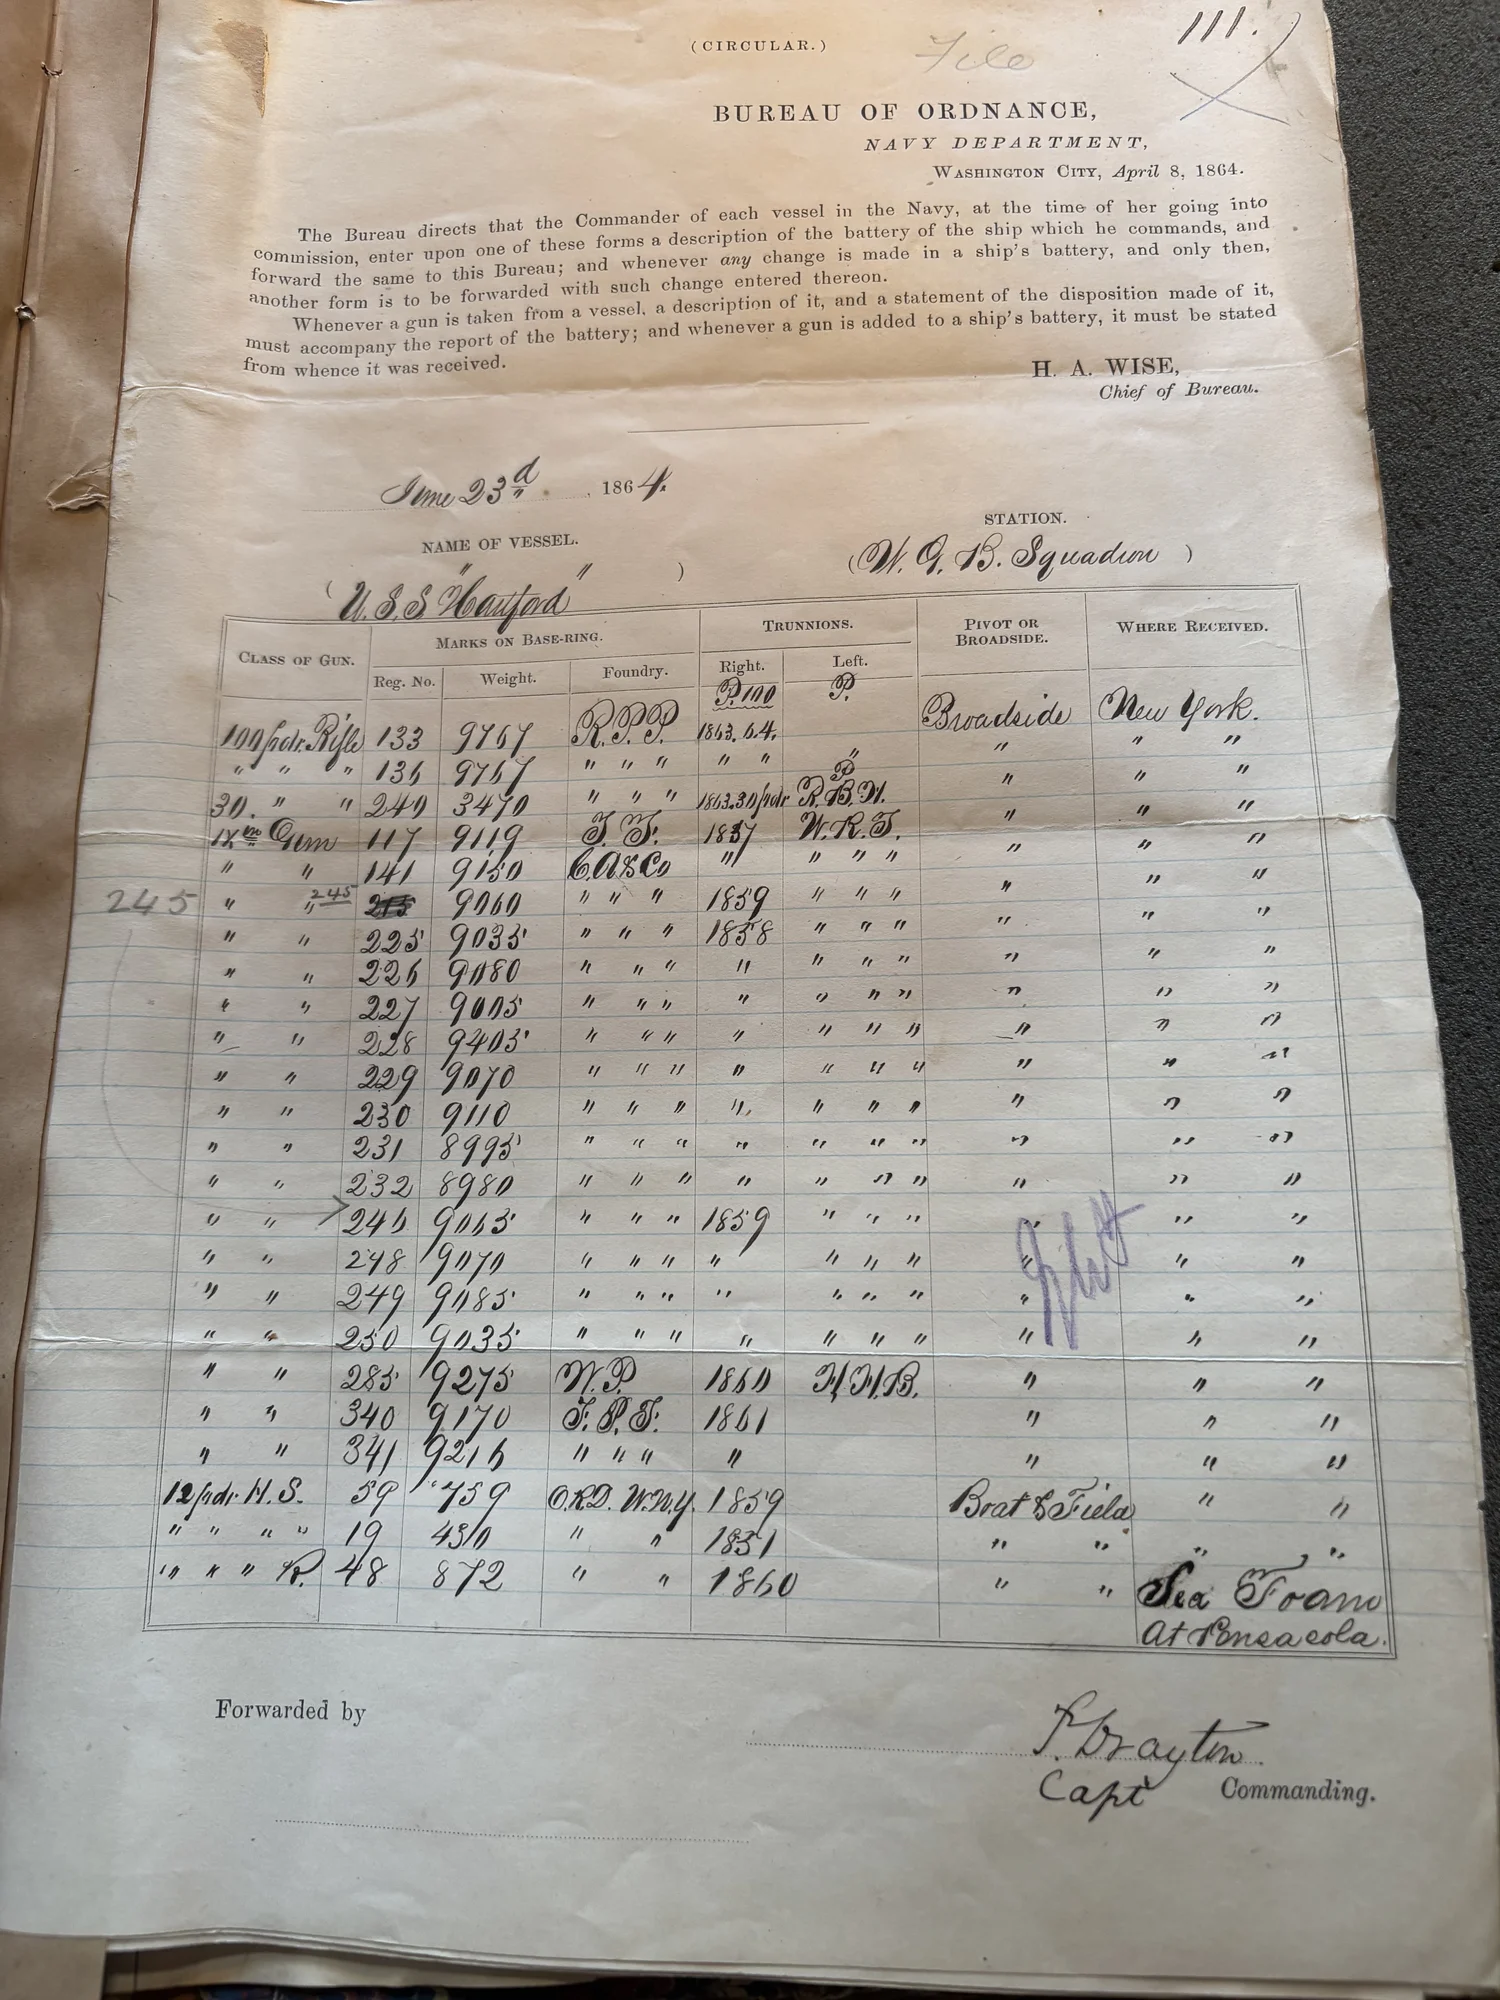 111.
(CIRCULAR.)
File
BUREAU OF ORDNANCE,
NAVY DEPARTMENT,
WASHINGTON CITY, April 8, 1864.
The Bureau directs that the Commander of each vessel in the Navy, at the time of her going into
commission, enter upon one of these forms a description of the battery of the ship which he commands, and
forward the same to this Bureau; and whenever any change is made in a ship's battery, and only then,
another form is to be forwarded with such change entered thereon.
Whenever a gun is taken from a vessel, a description of it, and a statement of the disposition made of it,
must accompany the report of the battery; and whenever a gun is added to a ship's battery, it must be stated
from whence it was received.
H. A. WISE,
Chief of Bureau.
June 23d , 1864.
NAME OF VESSEL. STATION.
(U.S.S "Hartford") (W. G. B. Squadron)
CLASS OF GUN. MARKS ON BASE-RING. TRUNNIONS. PIVOT OR BROADSIDE. WHERE RECEIVED.
Reg. No. Weight. Foundry. Right. Left.
P. 100 P.
100/pdr. Rifle 133 9767 R.P.P. 1863. 6.4. Broadside New York.
" " " 136 9767 " " " " " " " " "
P
30. " " 240 3470 " " " 1863.30/pdr R.B.H. " " "
IX in Gun 117 9119 T. F. 1857 W.R.T. " " "
" " 141 9150 C.A&Co " " " " " " "
245 " " 245 9060 " " " 1859 " " " " " "
" " 225 9035 " " " 1858 " " " " " "
" " 226 9080 " " " " " " " " " "
" " 227 9005 " " " " " " " " " "
" " 228 9405 " " " " " " " " " "
" " 229 9070 " " " " " " " " " "
" " 230 9110 " " " " " " " " " "
" " 231 8995 " " " " " " " " " "
" " 232 8980 " " " " " " " " " "
" " 246 9065 " " " 1859 " " " " " "
" " 248 9070 " " " " " " " " " "
" " 249 9085 " " " " " " " " " "
" " 250 9035 " " " " " " " " " "
" " 285 9275 W.P. 1860 H.H.B. " " "
" " 340 9170 F.P.F. 1861 " " "
" " 341 9216 " " " " " " "
12/pdr. H.S. 59 759 ORD. W.N.Y. 1859 Boat & Field " "
" " " " 19 430 " " 1851 " " " "
" " " R. 48 872 " " 1860 " " Sea Foam
At Pensacola.
Forwarded by
P. Drayton
Capt Commanding.